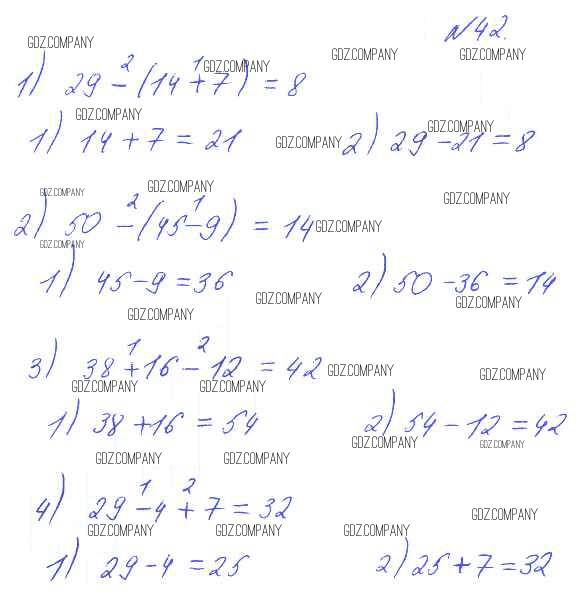 №42.
GDZ.COMPANY GDZ.COMPANY GDZ.COMPANY
2 1 GDZ.COMPANY
1) 29 - (14 + 7) = 8
GDZ.COMPANY GDZ.COMPANY
1) 14 + 7 = 21 GDZ.COMPANY 2) 29 - 21 = 8
GDZ.COMPANY GDZ.COMPANY GDZ.COMPANY
2 1
2) 50 - (45 - 9) = 14 GDZ.COMPANY
GDZ.COMPANY
1) 45 - 9 = 36 2) 50 - 36 = 14
GDZ.COMPANY GDZ.COMPANY
GDZ.COMPANY
1 2
3) 38 + 16 - 12 = 42 GDZ.COMPANY GDZ.COMPANY
GDZ.COMPANY GDZ.COMPANY
1) 38 + 16 = 54 2) 54 - 12 = 42
GDZ.COMPANY GDZ.COMPANY
GDZ.COMPANY GDZ.COMPANY
1 2
4) 29 - 4 + 7 = 32 GDZ.COMPANY
GDZ.COMPANY GDZ.COMPANY GDZ.COMPANY
1) 29 - 4 = 25 2) 25 + 7 = 32